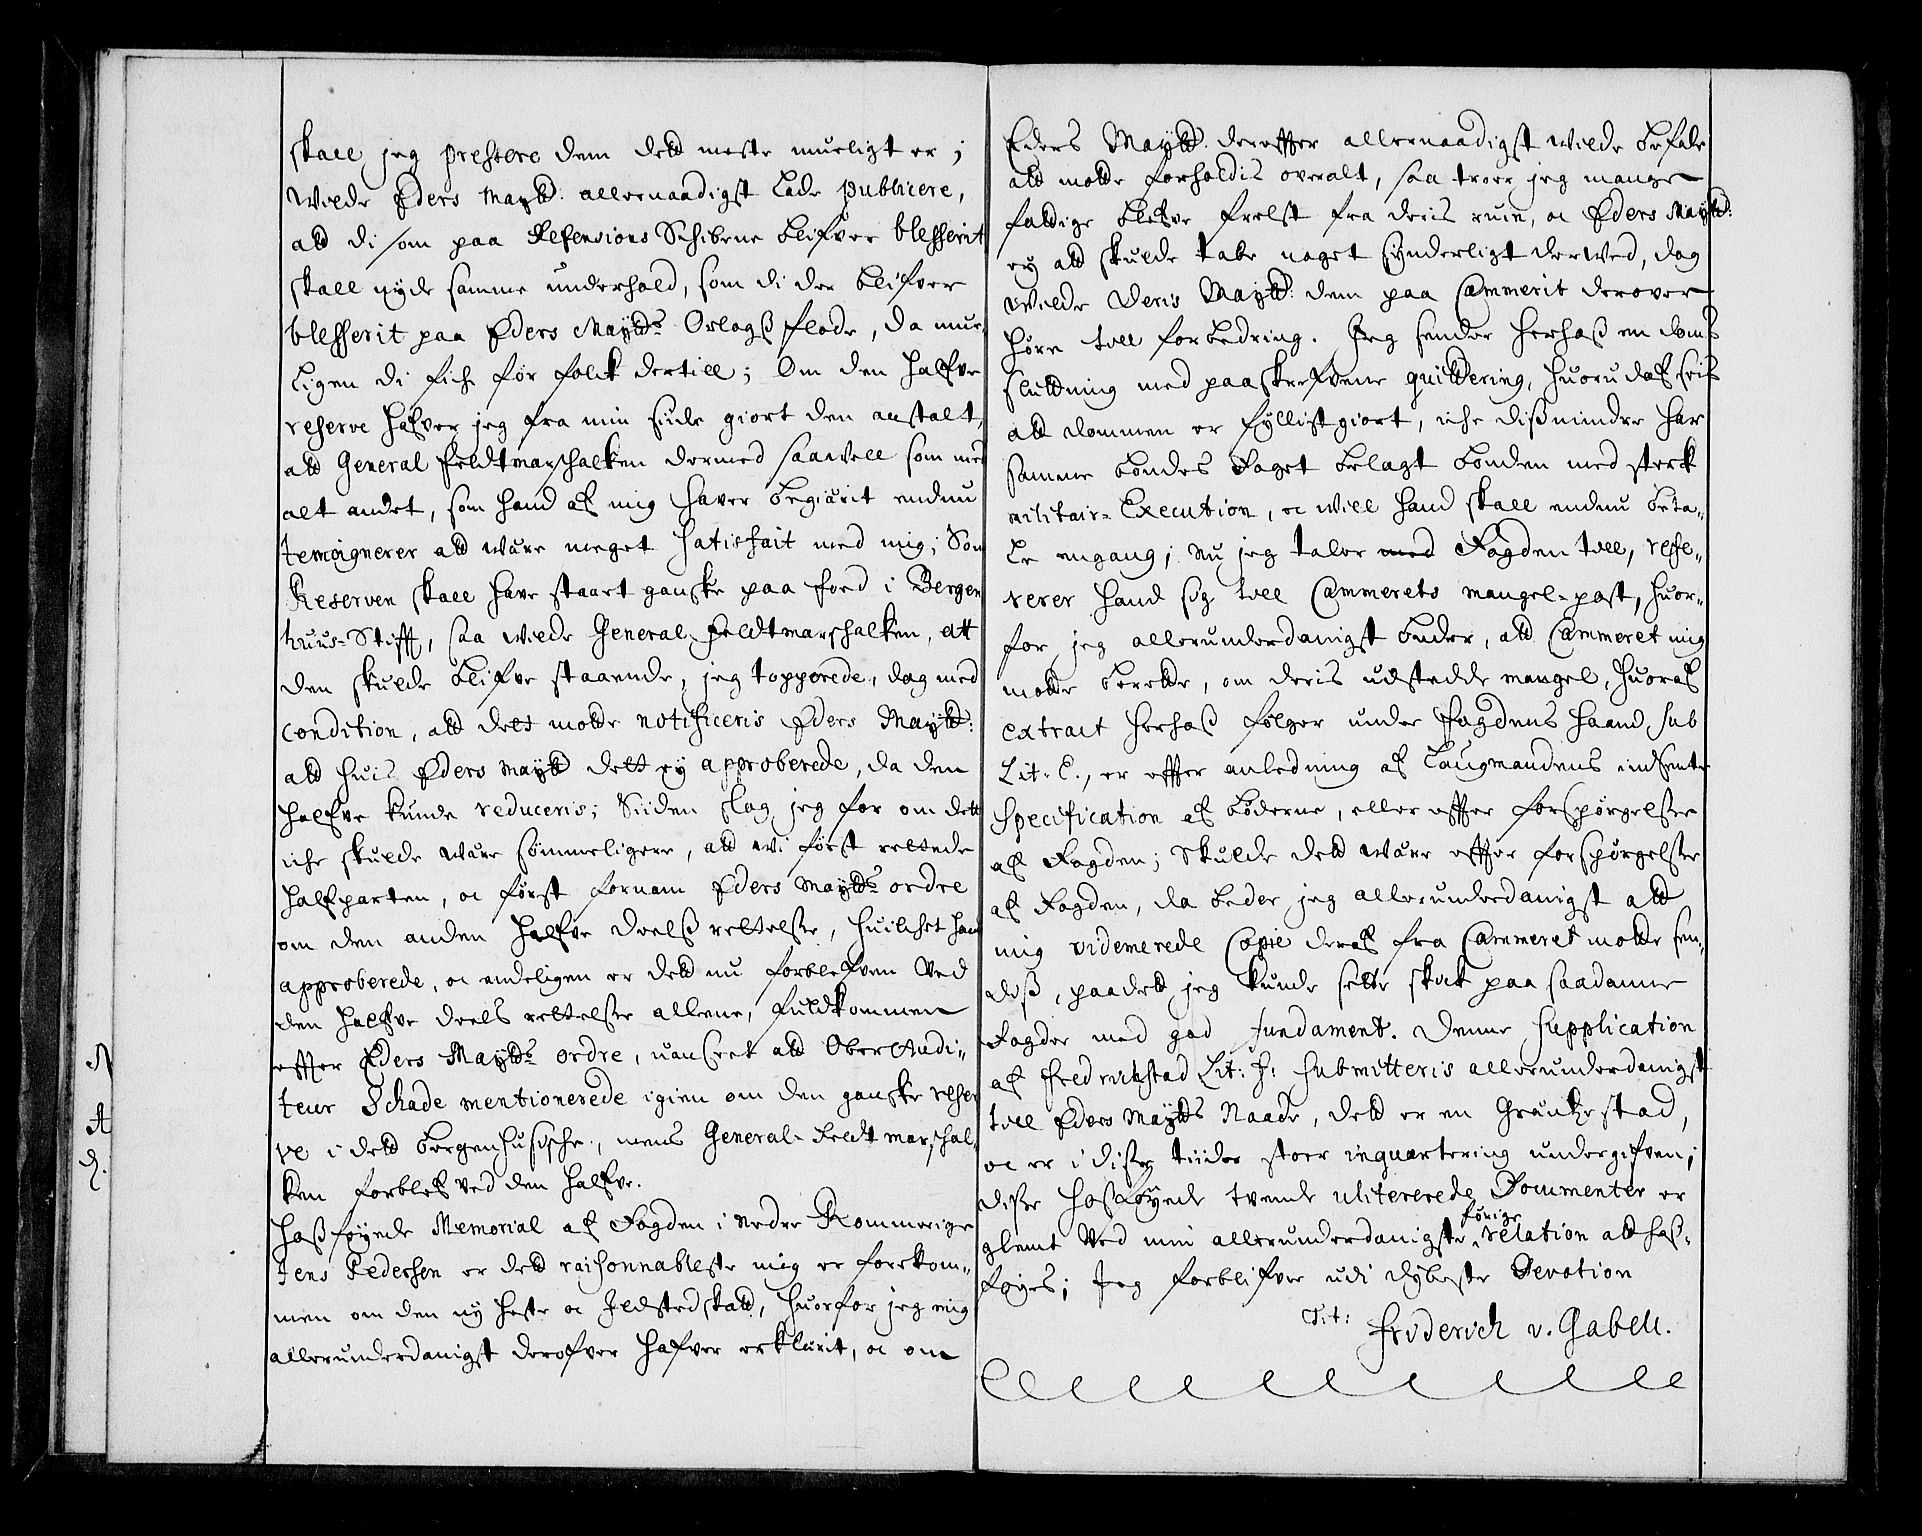 skall jeg pressere dem det meste mueligt er;
Wilde Eders Mayt: allernaadigst lade publicere,
att di som paa Defensions Schibene blifver blesserit
skall nyde samme underhold, som di der blifver
blesserit paa Eders Maytts Orlogß flode, da mue-
ligen di fich før folck dertill; Om den halfve
reserve hafver jeg fra min siide giort den anstalt,
att General feldtmarschalken dermed saavell som med
alt andet, som hand af mig haver begiærit endnu
temoignerer att være meget satisfait med mig; Som
Reserven skall have staart ganske paa food i Bergen
huus-Stifft, saa wilde General-Feldtmarschalken, att
den skulde blifve staaende, jeg topperede, dog med
condition, att dett motte notificeris Eders Mayt:
att huis Eders Mayt dett ey approberede, da den
halfve kunde reduceris; Siiden slog jeg for om dett
iche skulde være sømmeligere, att wi først rettede
halfparten, oc først fornam Eders Maytts ordre
om den anden halfve deelß rettelse, huilchet hand
approberede, oc endeligen er dett nu forblefven ved
den halfve deels rettelse allene, fuldkommen
effter Eders Maytts ordre, uanseet att Ober Audi-
teur Schade mentionerede igien om den ganske reser
ve i dett bergenhusische, mens General-Feldtmarschal-
ken forblef ved den halfve.
Hoßføyede Memorial af Fogden i Nedre Rommerige
Jens Pedersen er dett raisonnableste mig er forekom-
men om den ny heste oc Ildstedskatt, huorfor jeg mig
allerunderdanigst derofver hafver erklærit, oc om
Eders Maytt. dereffter allernaadigst wilde befale
att motte forholdis overalt, saa troer jeg mange
faldige blefve frelst fra deris ruin, oc Eders Maytt:
ey att skulde tabe noget synderligt derved, dog
wilde Deris Maytt: dem paa Cammerit derover
høre till forbedring. Jeg sender herhoß en doms
slutning med paaskrefvene quittering, huorudaf seis
att dommen er fyllistgiort, iche dißmindre har
samme bondes Foget belagt bonden med sterk
militair-Execution, oc will hand skall endnu beta-
le engang; nu jeg taler med Fogden till, refe-
rerer hand sig till Cammerets mangel-post, huor-
for jeg allerunderdanigst beder, att Cammeret mig
motte berette, om deris udstedde mangel, huoraf
extract herhoß følger under Fogdens haand sub
Lit: C., er effter anledning af Laugmandens indsente
Specification af bøderne, eller effter forspørgelse
af Fogden; Skulde dett være effter forspørgelse
af Fogden, da beder jeg allerunderdanigst att
mig videmerede Copie deraf fra Cammeret motte sen-
deß, paadett jeg kunde sette skik paa saadanne
Fogder med god fundament. Denne Supplication
af Fredrichstad Lit: F: submitteris allerunderdanigst
till Eders Maytts Naade, dett er en Grentze stad,
oc er i disse tiider stoer inquartering undergifven;
disse hoßføyede tvende uliterede Documenter er
glemt ved min allerunderdanigste førige relation att hoß-
føyes; Jeg forblifver udi dybeste Devotion
T:t:
Friderich v. Gabell.